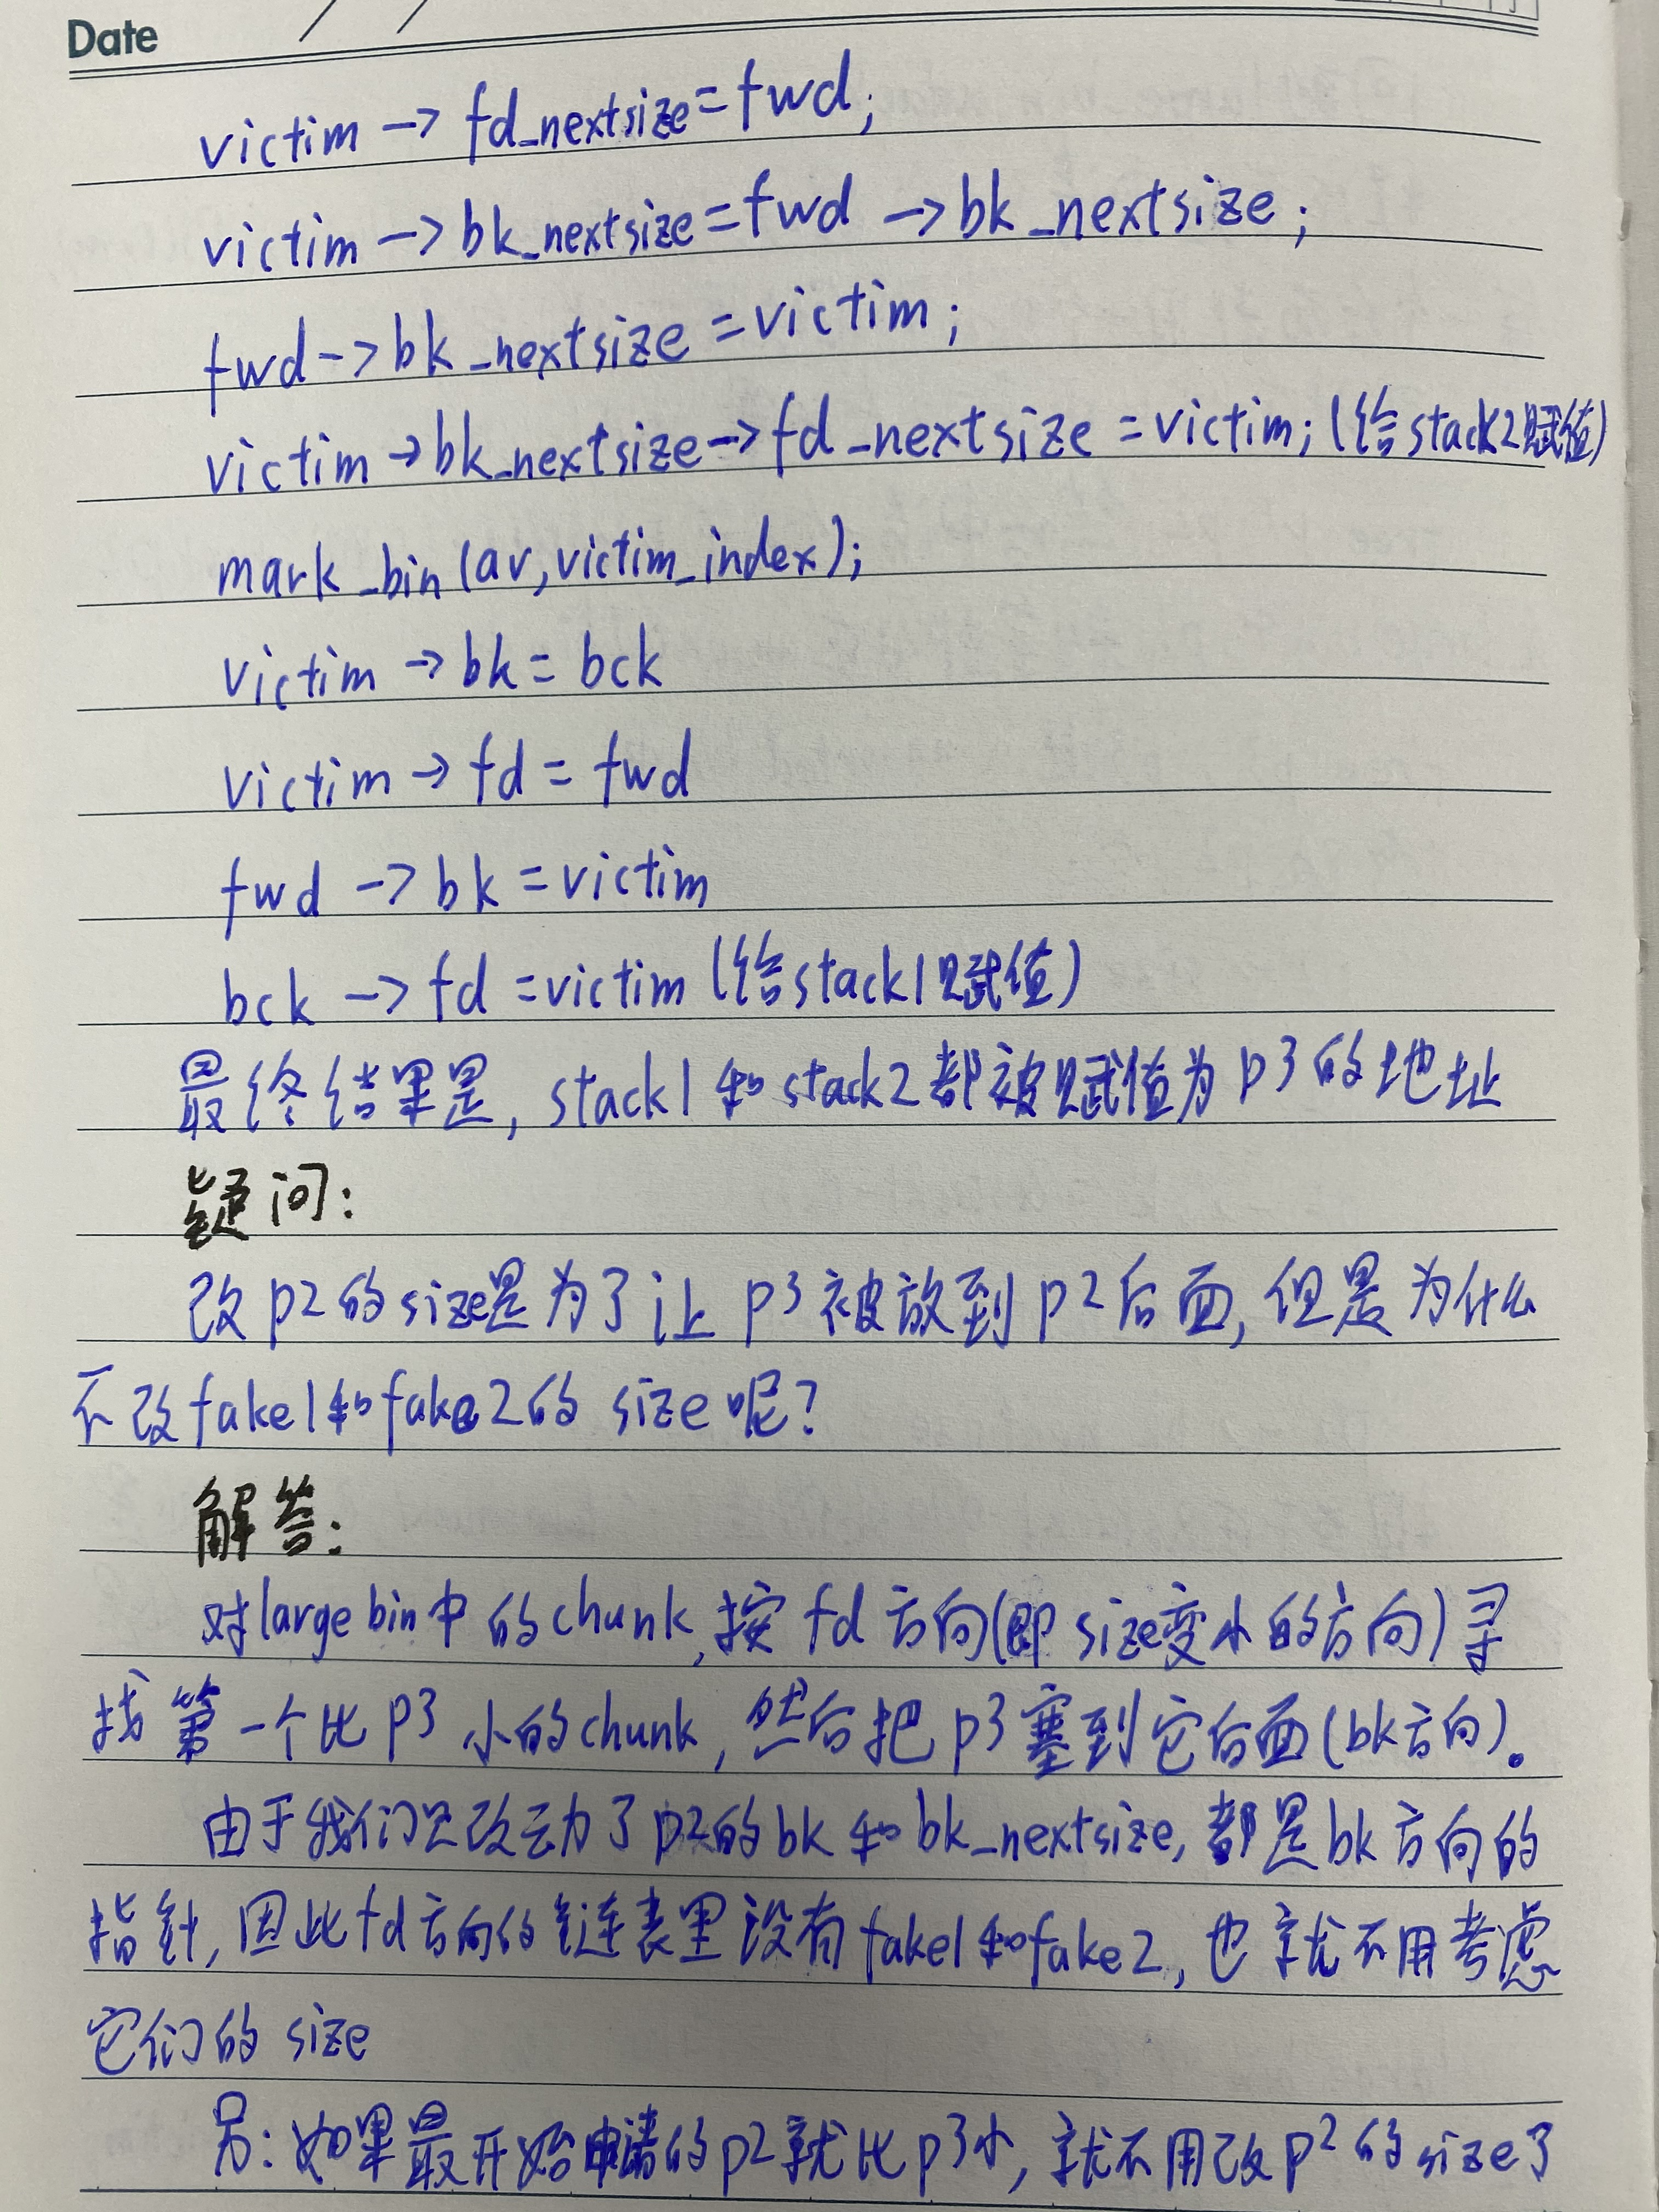 Date
victim -> fd_nextsize=fwd;
victim -> bk_nextsize=fwd -> bk_nextsize;
fwd -> bk_nextsize = victim;
victim -> bk_nextsize -> fd_nextsize = victim; (给stack2赋值)
mark_bin(av,victim_index);
victim -> bk = bck
victim -> fd = fwd
fwd -> bk = victim
bck -> fd = victim (给stack1赋值)
最终结果是, stack1和stack2都被赋值为p3的地址
疑问:
改p2的size是为了让p3被放到p2后面,但是为什么
不改fake1和fake2的size呢?
解答:
对large bin中的chunk,按fd方向(即size变小的方向)寻
找第一个比p3小的chunk,然后把p3塞到它后面(bk方向)。
由于我们只改动了p2的bk和bk_nextsize,都是bk方向的
指针,因此fd方向的链表里没有fake1和fake2,也就不用考虑
它们的size
另:如果最开始申请的p2就比p3小,就不用改p2的size了